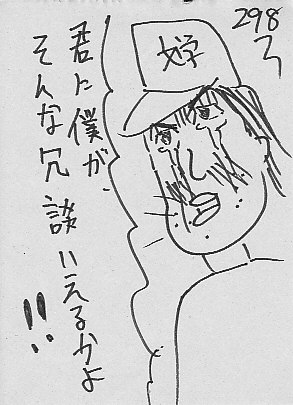 君に僕が
そんな冗談いえるかよ!!
298